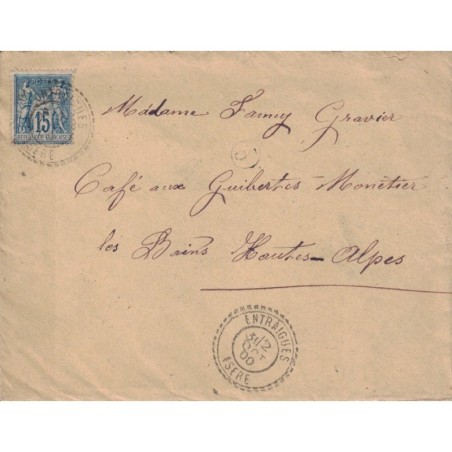 15
ISÈRE
Madame Fanny Gravier
C
Café aux Guibertes-Monêtier
les Bains Hautes-Alpes
ENTRAIGUES
2
31
OCT
00
ISÈRE